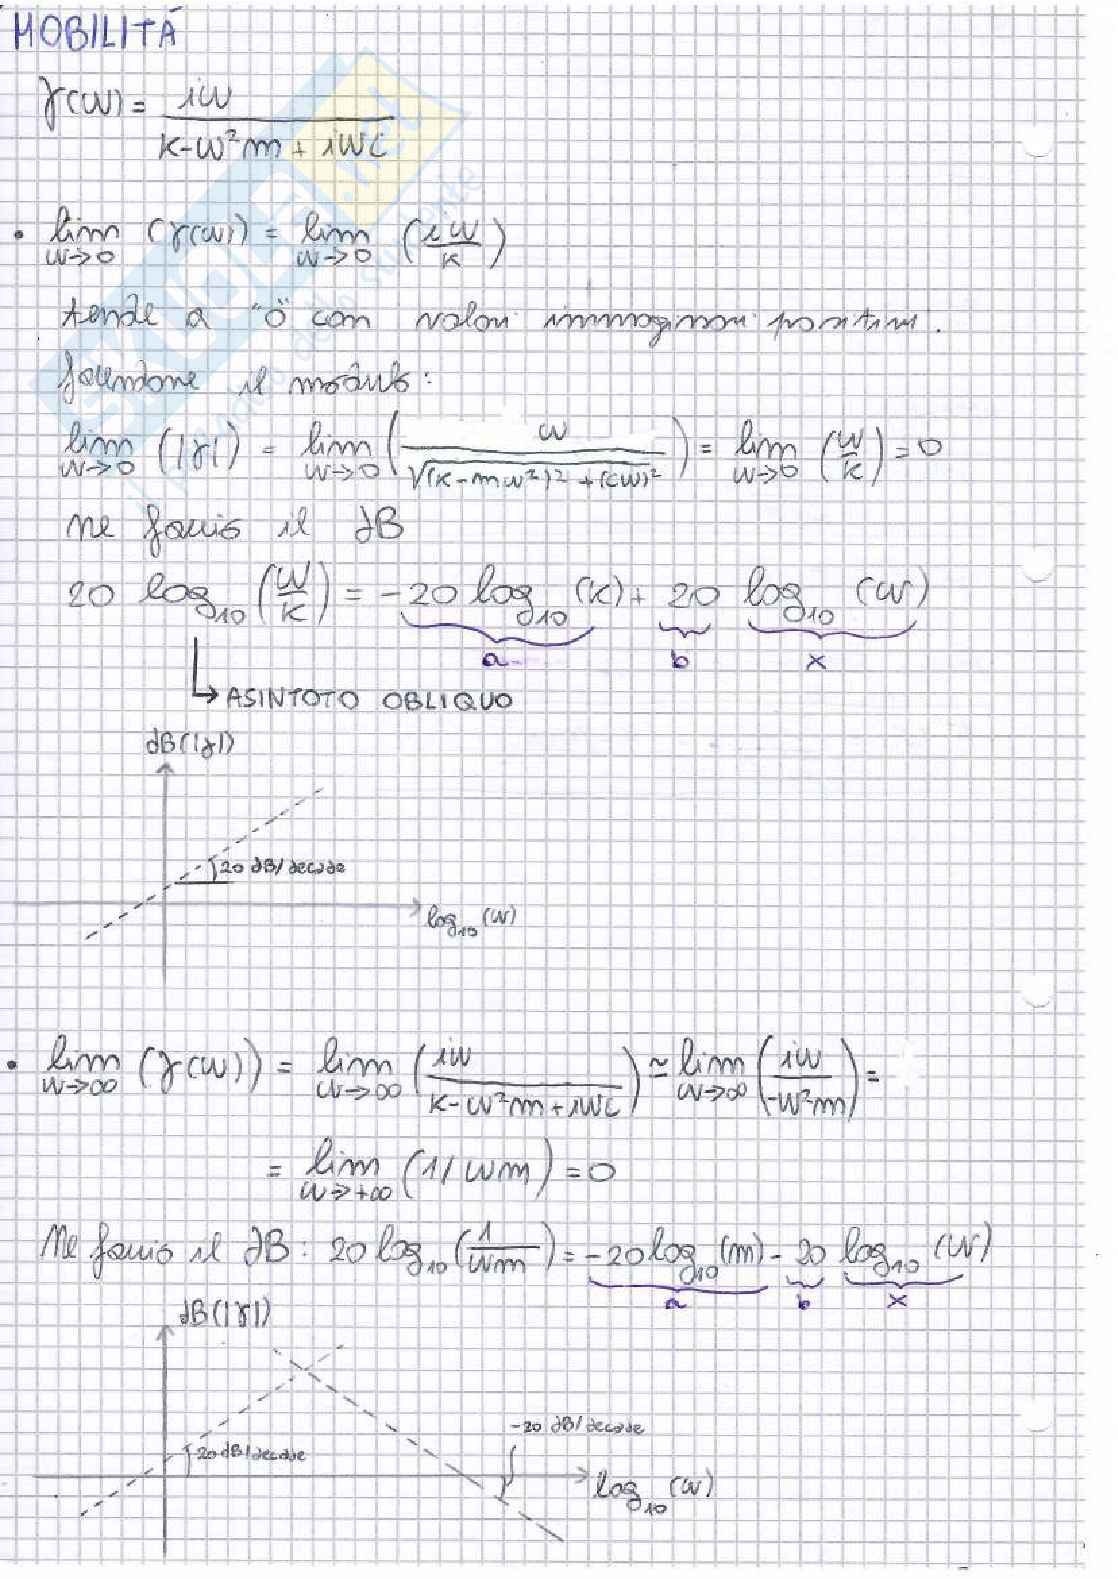 MOBILITÁ
γ(w) = iw / (k-w²m + iwc)
• lim w→0 (γ(w)) = lim w→0 (iw/k)
tende a "0" con valori immaginari positivi.
facendone il modulo:
lim w→0 (|γ|) = lim w→0 (w / √((k-mw²)² + (cw)²)) = lim w→0 (w/k) = 0
ne faccio il dB
20 log₁₀ (w/k) = -20 log₁₀ (k) + 20 log₁₀ (w)
a b x
↳ ASINTOTO OBLIQUO
dB(|γ|)
20 dB/decade
log₁₀ (w)
• lim w→∞ (γ(w)) = lim w→∞ (iw / (k-w²m + iwc)) ≃ lim w→∞ (iw / -w²m) =
= lim w→+∞ (1/wm) = 0
Ne faccio il dB: 20 log₁₀ (1/wm) = -20 log₁₀ (m) - 20 log₁₀ (w)
a b x
dB(|γ|)
-20 dB/decade
20 dB/decade
log₁₀ (w)